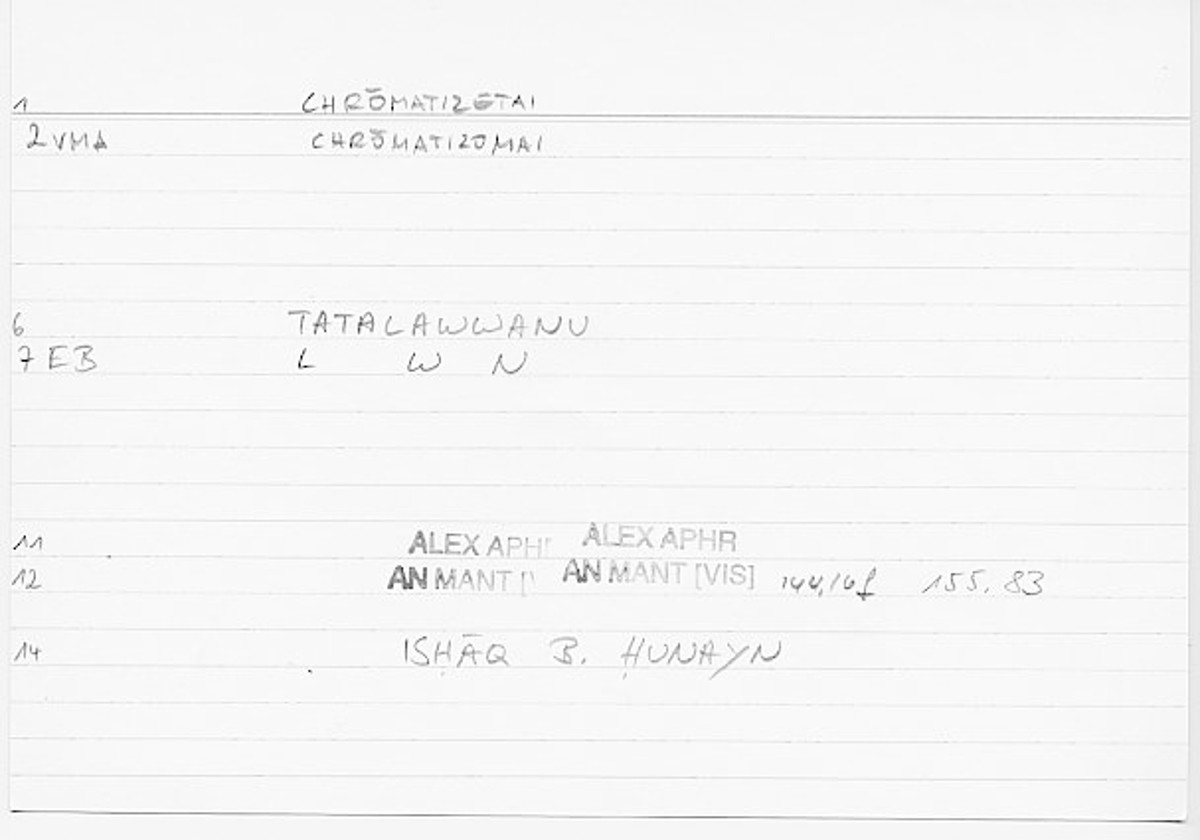 1 CHRŌMATIZETAI
2 VMA CHRŌMATIZOMAI
6 TATALAWWANU
7 EB L W N
11 ALEX APHR ALEX APHR
12 AN MANT [V AN MANT [VIS] 144,16f 155.83
14 ISḤĀQ B. ḤUNAYN